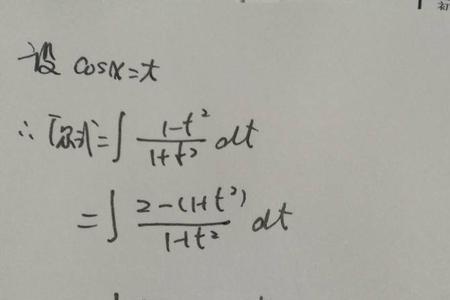 设 cosx=t
∴ 原式=∫ (1-t²)/(1+t²) dt
=∫ (2-(1+t²))/(1+t²) dt